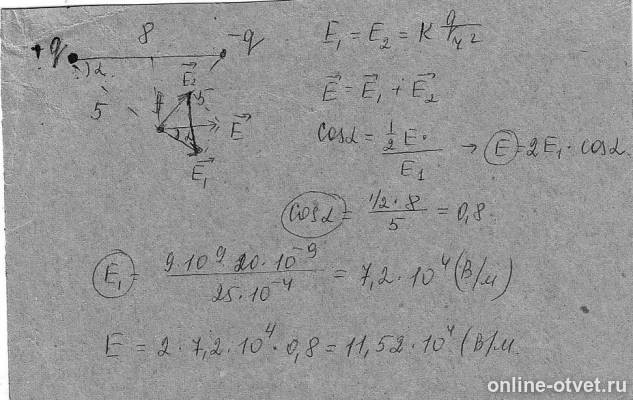 8
+q
-q
α
5
E⃗₂
5
E⃗
E⃗₁
E₁ = E₂ = K q/r²
E⃗ = E⃗₁ + E⃗₂
cosα = (½ E)/E₁ → E = 2E₁ · cosα
cosα = (1/2 · 8)/5 = 0,8
E₁ = (9·10⁹ 20·10⁻⁹)/(25·10⁻⁴) = 7,2·10⁴ (В/м)
E = 2 · 7,2·10⁴ · 0,8 = 11,52·10⁴ (В/м
online-otvet.ru